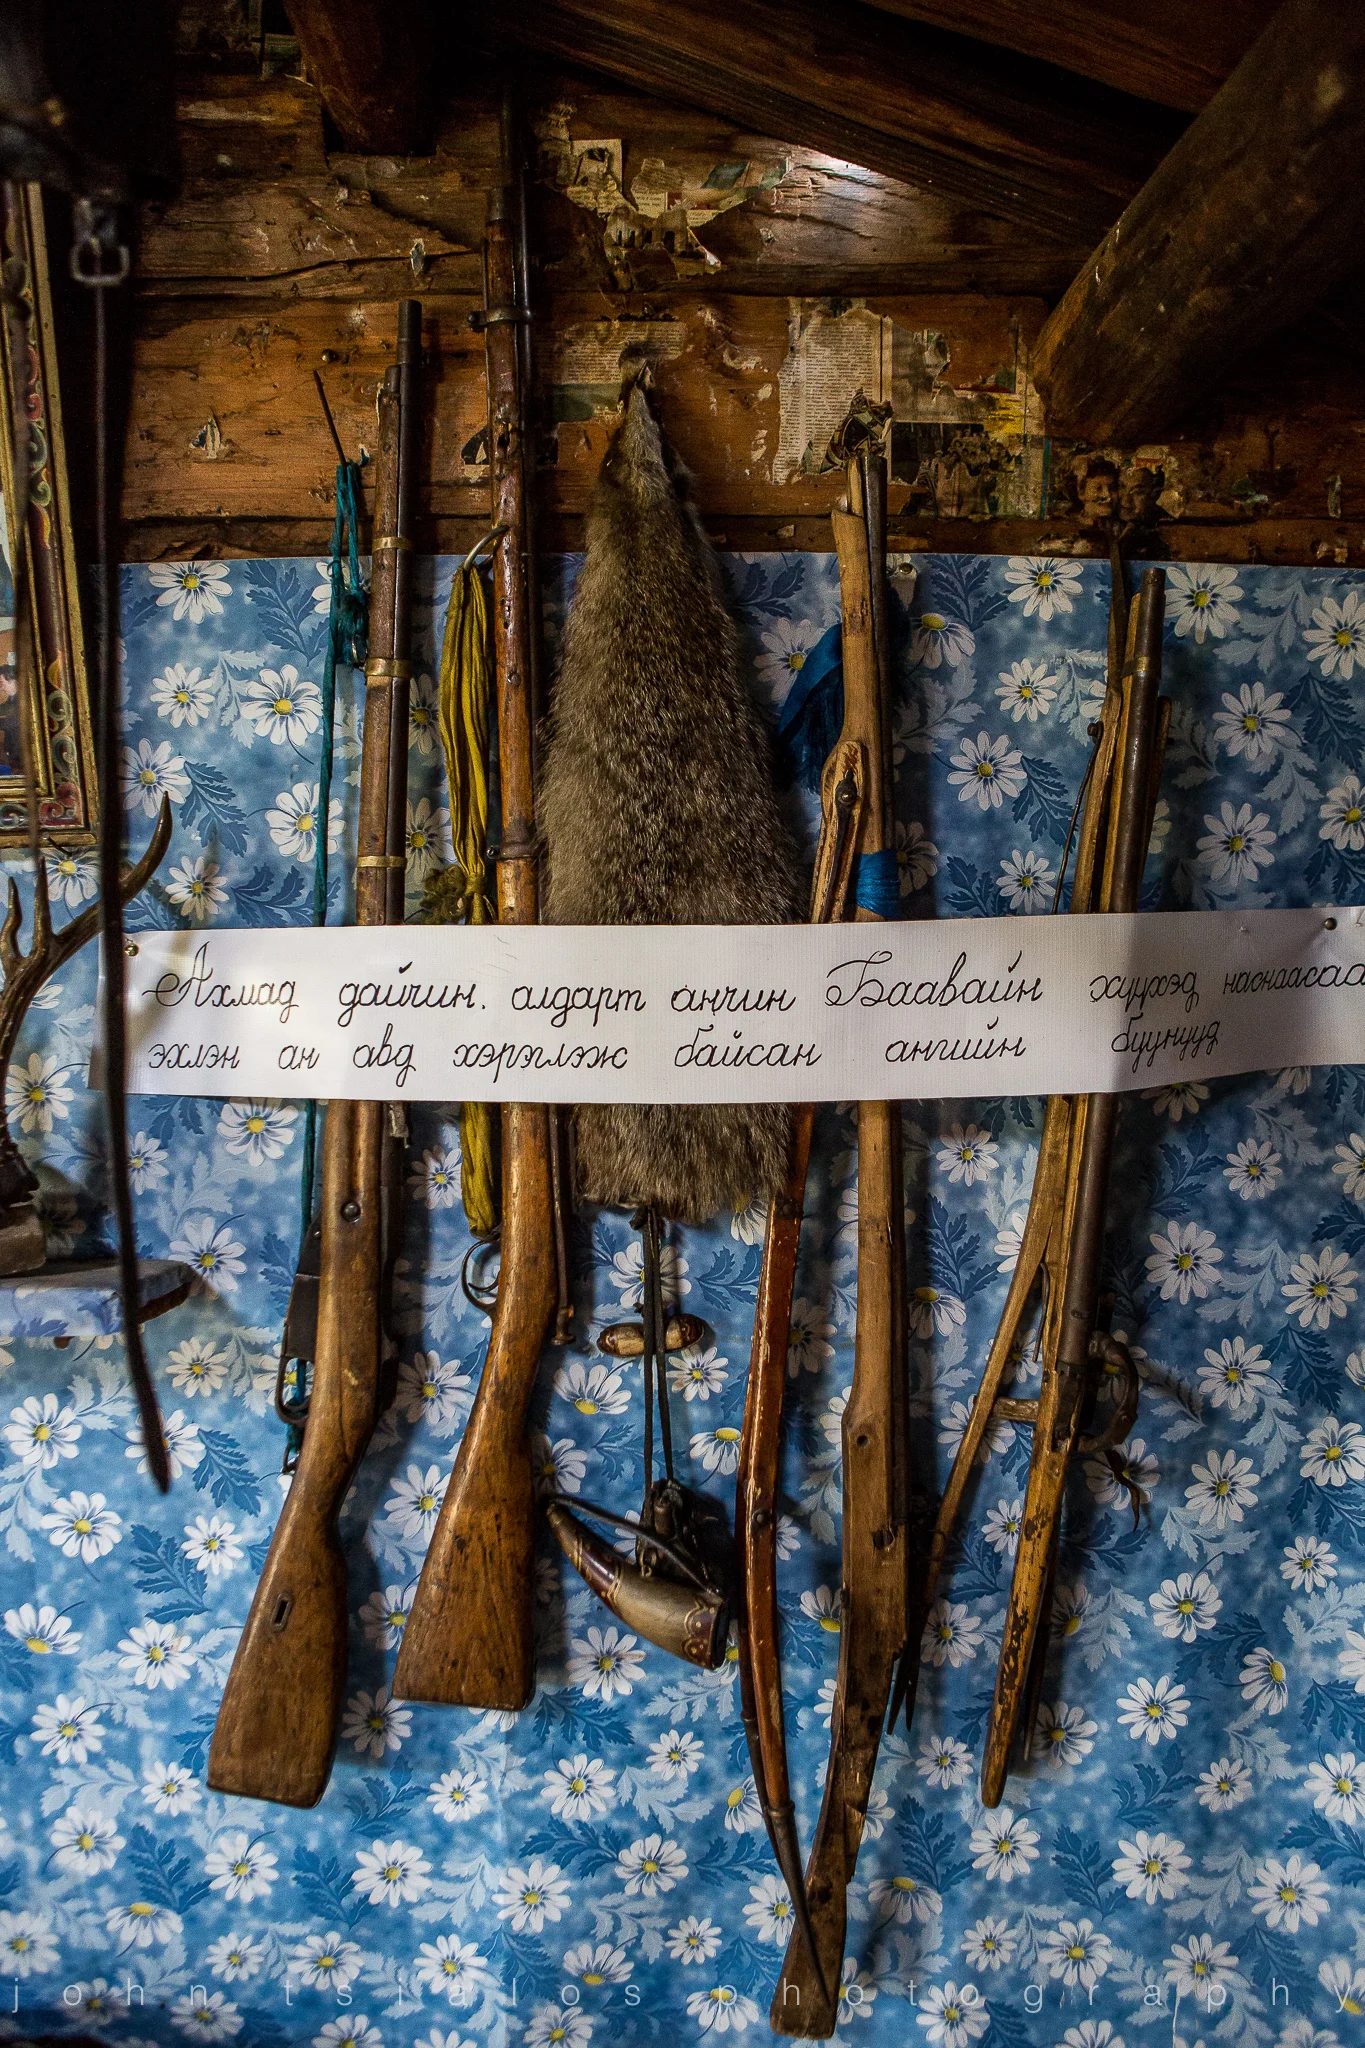 Ахмад дайчин. алдарт анчин Баавайн хүүхэд наснаасаа
эхлэн ан авд хэрэглэж байсан ангийн буунууд
john tsialos photography